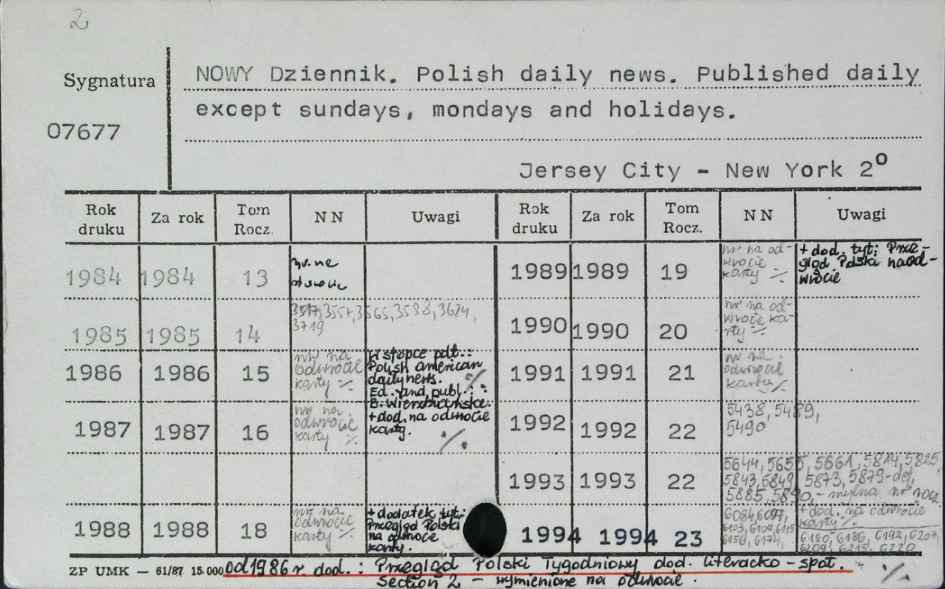 2
Sygnatura
07677
NOWY Dziennik. Polish daily news. Published daily
except sundays, mondays and holidays.
Jersey City - New York 2°
Rok druku Za rok Tom Rocz. NN Uwagi Rok druku Za rok Tom Rocz. NN Uwagi
1984 1984 13
1985 1985 14 3517, 3557, 3565, 3598, 3624, 3719
1986 1986 15 nr na odwrocie karty ./. W stopce podt.: Polish american daily news. Ed. and publ.: B. Wierzbiańska. ./.
1987 1987 16 nr na odwrocie karty ./. + dod. na odwrocie karty. ./.
1988 1988 18 nr na odwrocie karty ./. + dodatek tyt: Przegląd Polski na odwrocie karty.
1989 1989 19 nr na odwrocie karty ./. + dod. tyt: Przegląd Polski na odwrocie
1990 1990 20 nr na odwrocie karty ./.
1991 1991 21 nr na odwrocie karty ./.
1992 1992 22 5438, 5489, 5490
1993 1993 22 5644, 5655, 5661, 5814, 5825, 5843, 5849, 5873, 5879-
5885, 5890, - mylna nr
1994 1994 23 + dod. na odwrocie karty ./.
6180, 6186, 6192, 6207,
ZP UMK — 61/87 15.000 od 1986 r. dod.: Przegląd Polski Tygodniowy dod. literacko-społ.
Section 2 - wymienione na odwrocie. ./.